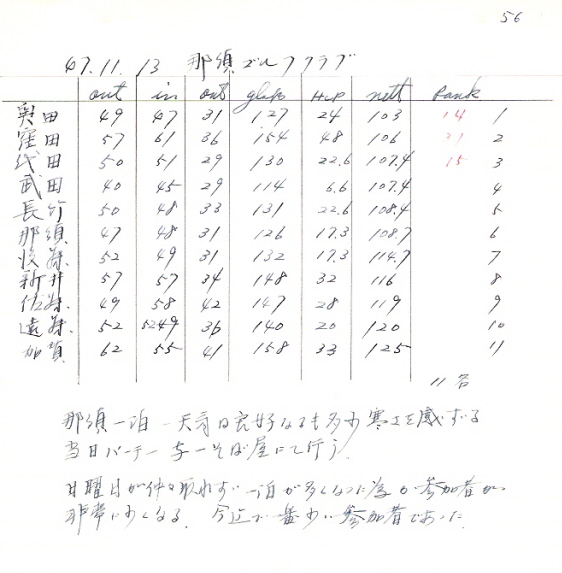 56
47.11.13 那須ゴルフクラブ
out in out gloss Hcp nett Rank
奥田 49 47 31 127 24 103 14 1
窪田 57 61 36 154 48 106 21 2
代田 50 51 29 130 22.6 107.4 15 3
武田 40 45 29 114 6.6 107.4 4
長竹 50 48 33 131 22.6 108.4 5
那須 47 48 31 126 17.3 108.7 6
52 49 31 132 17.3 114.7 7
新井 57 57 34 148 32 116 8
佐藤 49 58 42 147 28 119 9
遠藤 52 5249 36 140 20 120 10
加賀 62 55 41 158 33 125 11
11名
那須一泊 天気は良好なるも多少寒さを感ずる
当日パーティー そば屋にて行う.
日曜日が仲々取れずに一泊が多くなった為か参加者が
非常に少くなる. 今迄で一番少い参加者であった